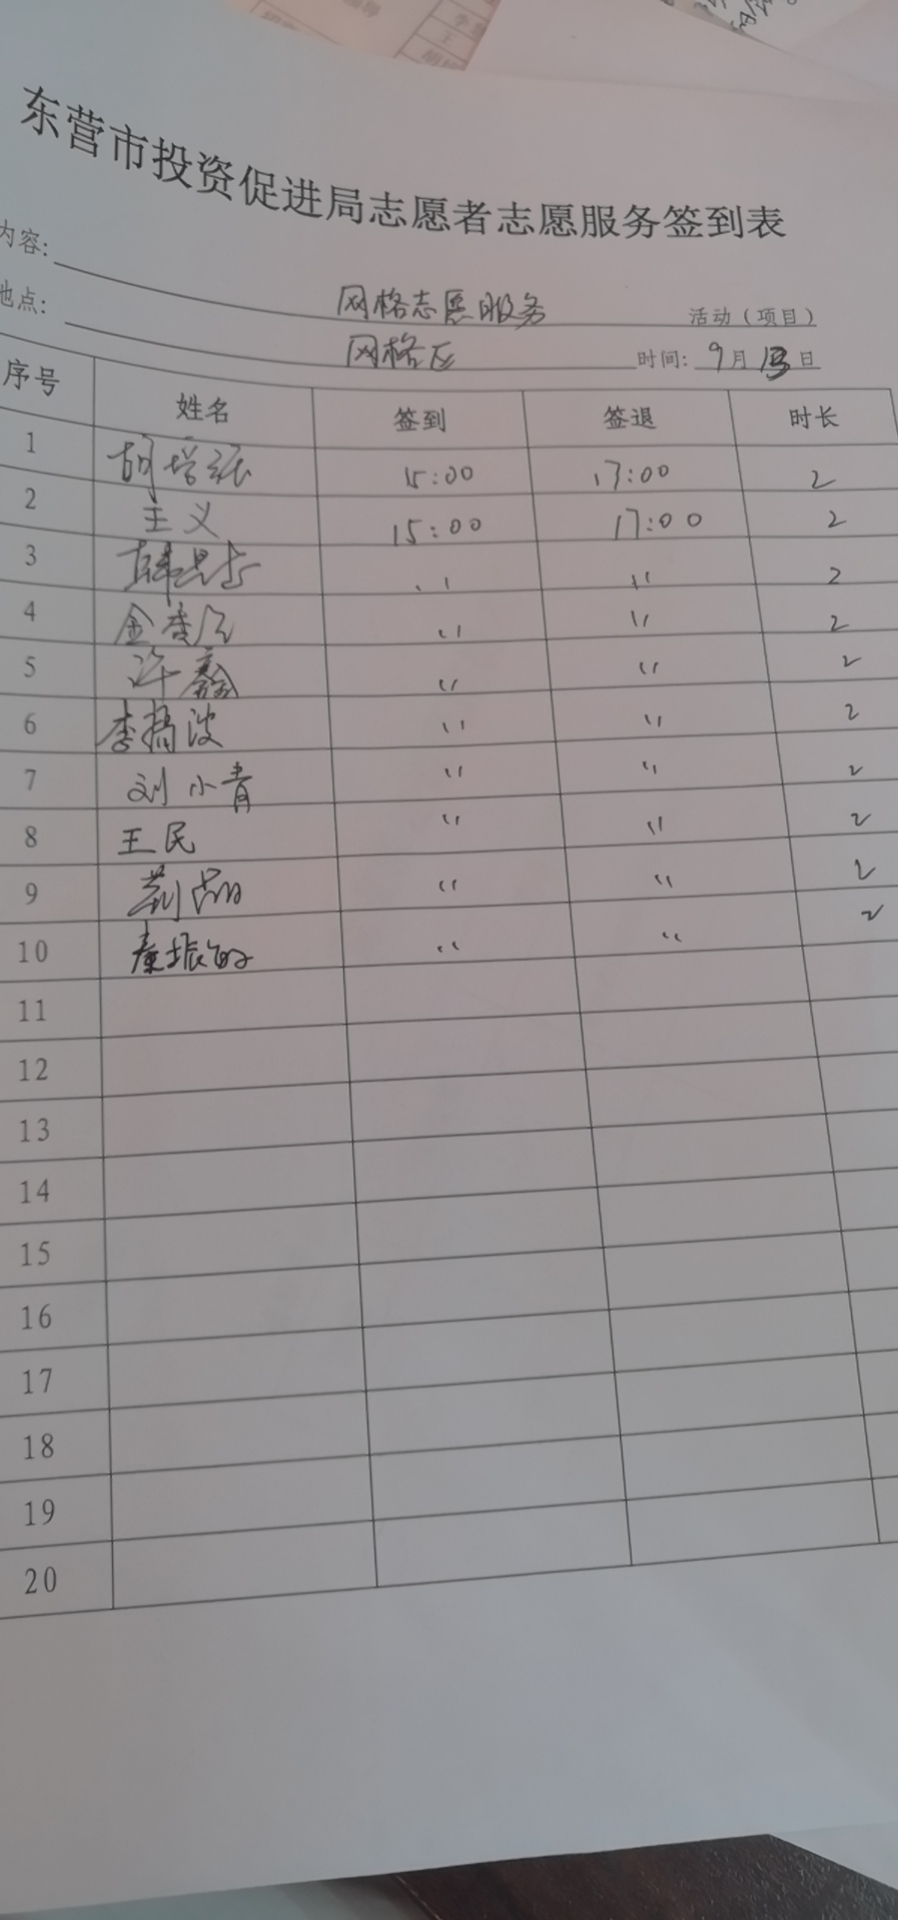 东营市投资促进局志愿者志愿服务签到表
内容: 网格志愿服务 活动（项目）
地点: 网格区 时间: 9月13日
序号 姓名 签到 签退 时长
1 胡增强 15:00 17:00 2
2 王义 15:00 17:00 2
3 〃 〃 2
4 金 〃 〃 2
5 许鑫 〃 〃 2
6 李 波 〃 〃 2
7 刘小青 〃 〃 2
8 王民 〃 〃 2
9 荆晶 〃 〃 2
10 秦振 〃 〃 2
11
12
13
14
15
16
17
18
19
20